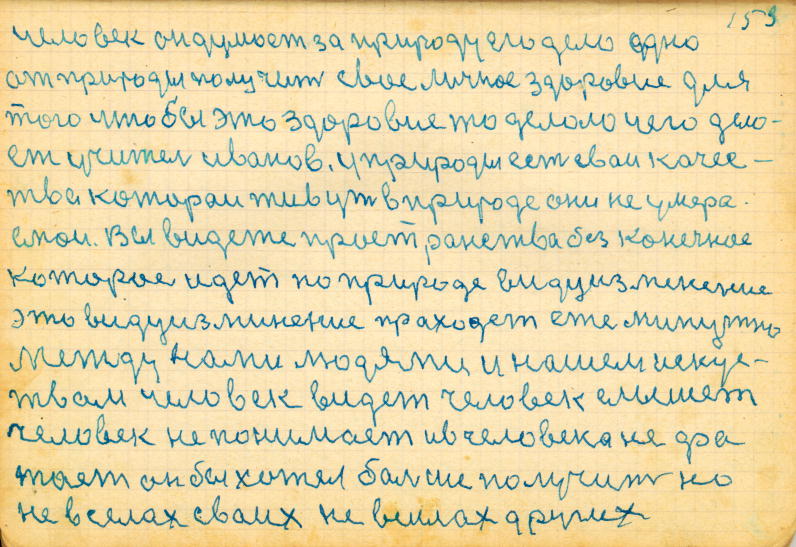 153
человек ондумоет за природу его дело одно
отприроды получит свое личное здоровие для
того што бы это здоровие то делоло чего дело-
ет учител иванов. уприроды ест сваи качес-
тва котораи живут вприроде они не умера-
емои. Вы видете прост ранства без конечное
которое идет поприроде видуизменение
это видуизминение праходет ежеминутно
Между нами людями и нашем искус-
твам человек видет человек слышет
человек непонимает ивчеловека не фа
тает он бы хотел балше получит но
не всилах сваих не вилах других